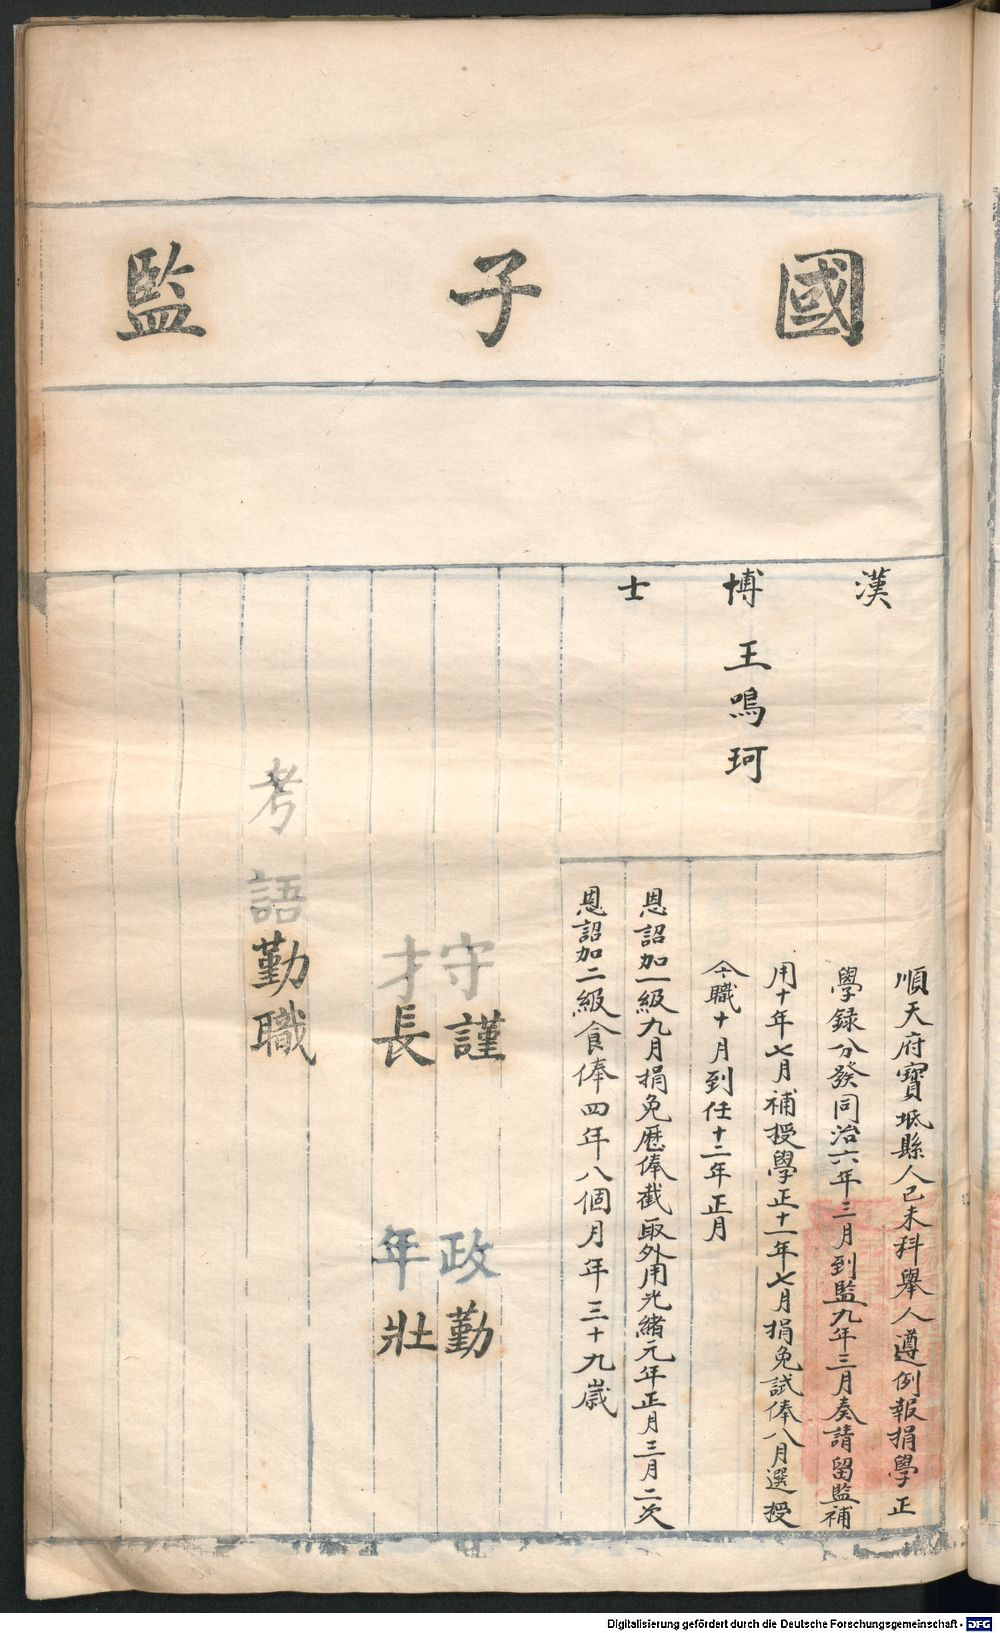 國子監
漢博士
王鳴珂
順天府寶坻縣人己未科舉人遵例報捐學正
學録分發同治六年三月到監九年三月奏請留監補
用十年七月補授學正十一年七月捐免試俸八月選授
今職十月到任十二年正月
恩詔加一級九月捐免歷俸截取外用光緒元年正月三月二次
恩詔加二級食俸四年八個月年三十九歲
守謹 政勤
才長 年壯
考語勤職
Digitalisierung gefördert durch die Deutsche Forschungsgemeinschaft - DFG